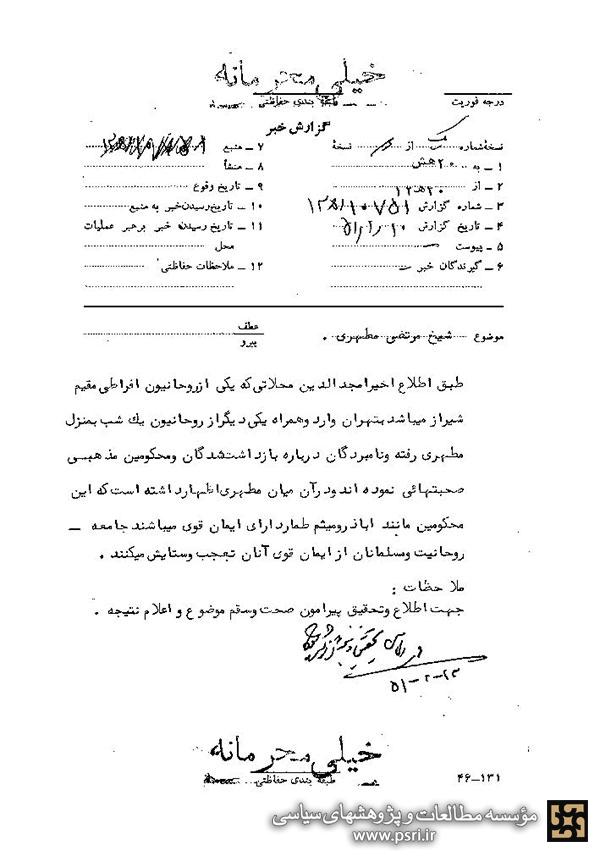 خیلی محرمانه
طبقه بندی حفاظتی
درجه فوریت
گزارش خبر
نسخهٔ شماره یک از نسخهٔ
۱ ـ به ۲۰ هش
۲ ـ از ۲۰ ه ۱۲
۳ ـ شماره گزارش
۴ ـ تاریخ گزارش
۵ ـ پیوست ـ
۶ ـ گیرندگان خبر
۷ ـ منبع
۸ ـ منشأ
۹ ـ تاریخ وقوع
۱۰ ـ تاریخ رسیدن خبر به منبع
۱۱ ـ تاریخ رسیدن خبر برهبر عملیات
محل
۱۲ ـ ملاحظات حفاظتی
موضوع شیخ مرتضی مطهری .
عطف
پیرو
طبق اطلاع اخیرا مجدالدین محلاتی که یکی ازروحانیون افراطی مقیم
شیراز میباشد بتهران وارد وهمراه یکی دیگراز روحانیون یك شب بمنزل
مطهری رفته ونامبردگان درباره بازداشتشدگان ومحکومین مذهبی
صحبتهائی نموده اند ودر آن میان مطهری اظهارد اشته است که این
محکومین مانند اباذر ومیثم طمار دارای ایمان قوی میباشند جامعه ـ
روحانیت ومسلمانان از ایمان قوی آنان تعجب وستایش میکنند .
ملاحظات :
جهت اطلاع وتحقیق پیرامون صحت وسقم موضوع و اعلام نتیجه .
خیلی محرمانه
طبقه بندی حفاظتی
۴۶-۱۳۱
مؤسسه مطالعات و پژوهشهای سیاسی
www.psri.ir